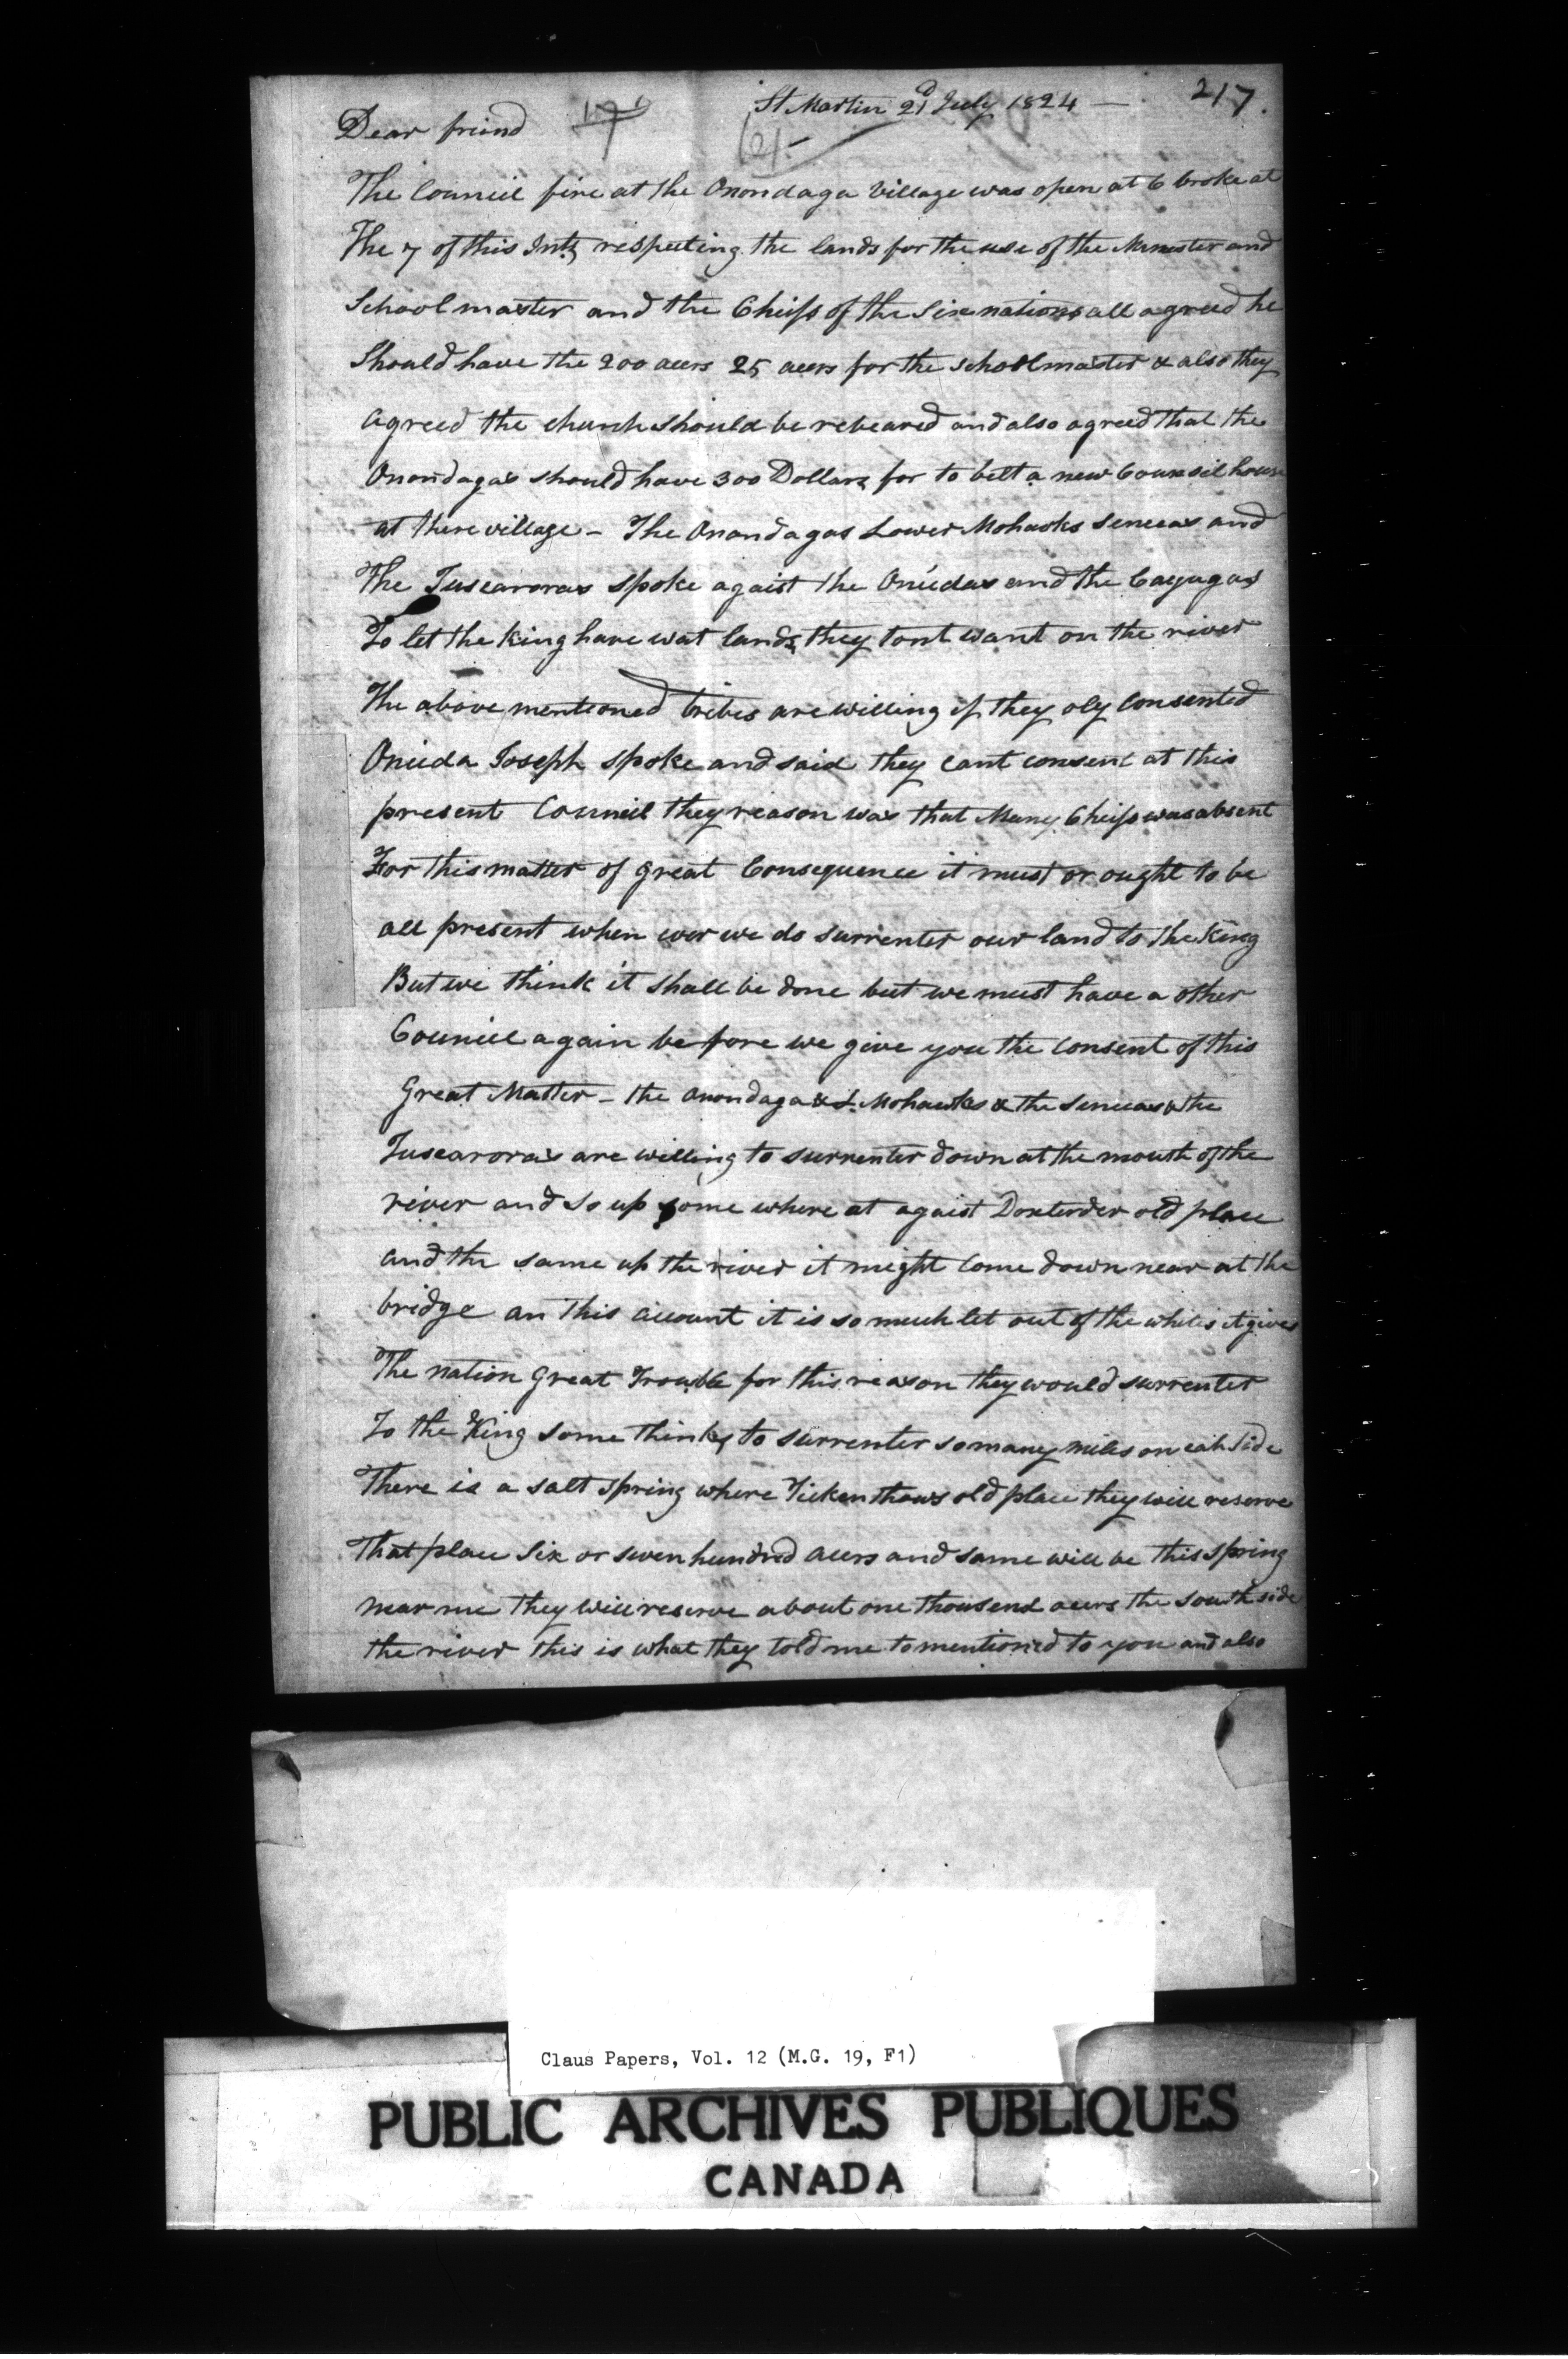 217.
St Martin 21 July 1824 —
Dear friend
The Council fire at the Onondaga Village was open at 6 broke at
The 7 of this Int, respeeting the lands for the use of the Minester and
School master and the Cheifs of the Six nations all agreed he
Should have the 200 acers 25 acers for the schoolmaster & also they
agreed the church should be rebeared and also agreed that the
Onondagas should have 300 Dollars for to belt a new Counsil house
at there village – The Onondagas Lower Mohawks Senecas and
The Tuscaroras spoke agaist the Oneidas and the Cayugas
To let the King have wat lands they tont want on the river
The above mentioned tribes are willing if they oly Consented
Oneida Joseph spoke and said they cant consent at this
present Council they reason was that Many Cheifs was absent
For this matter of great Consequence it must or ought to be
all present when ever we do surrenter our land to the King
But we think it shall be done but we must have a other
Council again be fore we give you the consent of this
Great Matter – the Onondagas & L. Mohawks & the Senecas & the
Tuscaroras are willing to surrenter down at the mouth of the
river and so up some where at agaist Doxterder old place
and the same up the river it might come down near at the
bridge an this account it is so much let out of the whites it gives
The nation Great Trouble for this reason they would surrenter
To the King some thinks to surrenter so many miles on eah Side
There is a salt spring where old place they will reserve
That place Six or seven hundred acers and same will be this spring
near me they will reserve about one thousend acers the south side
the river this is what they told me to mentioned to you and also
Claus Papers, Vol. 12 (M.G. 19, F1)
PUBLIC ARCHIVES PUBLIQUES
CANADA